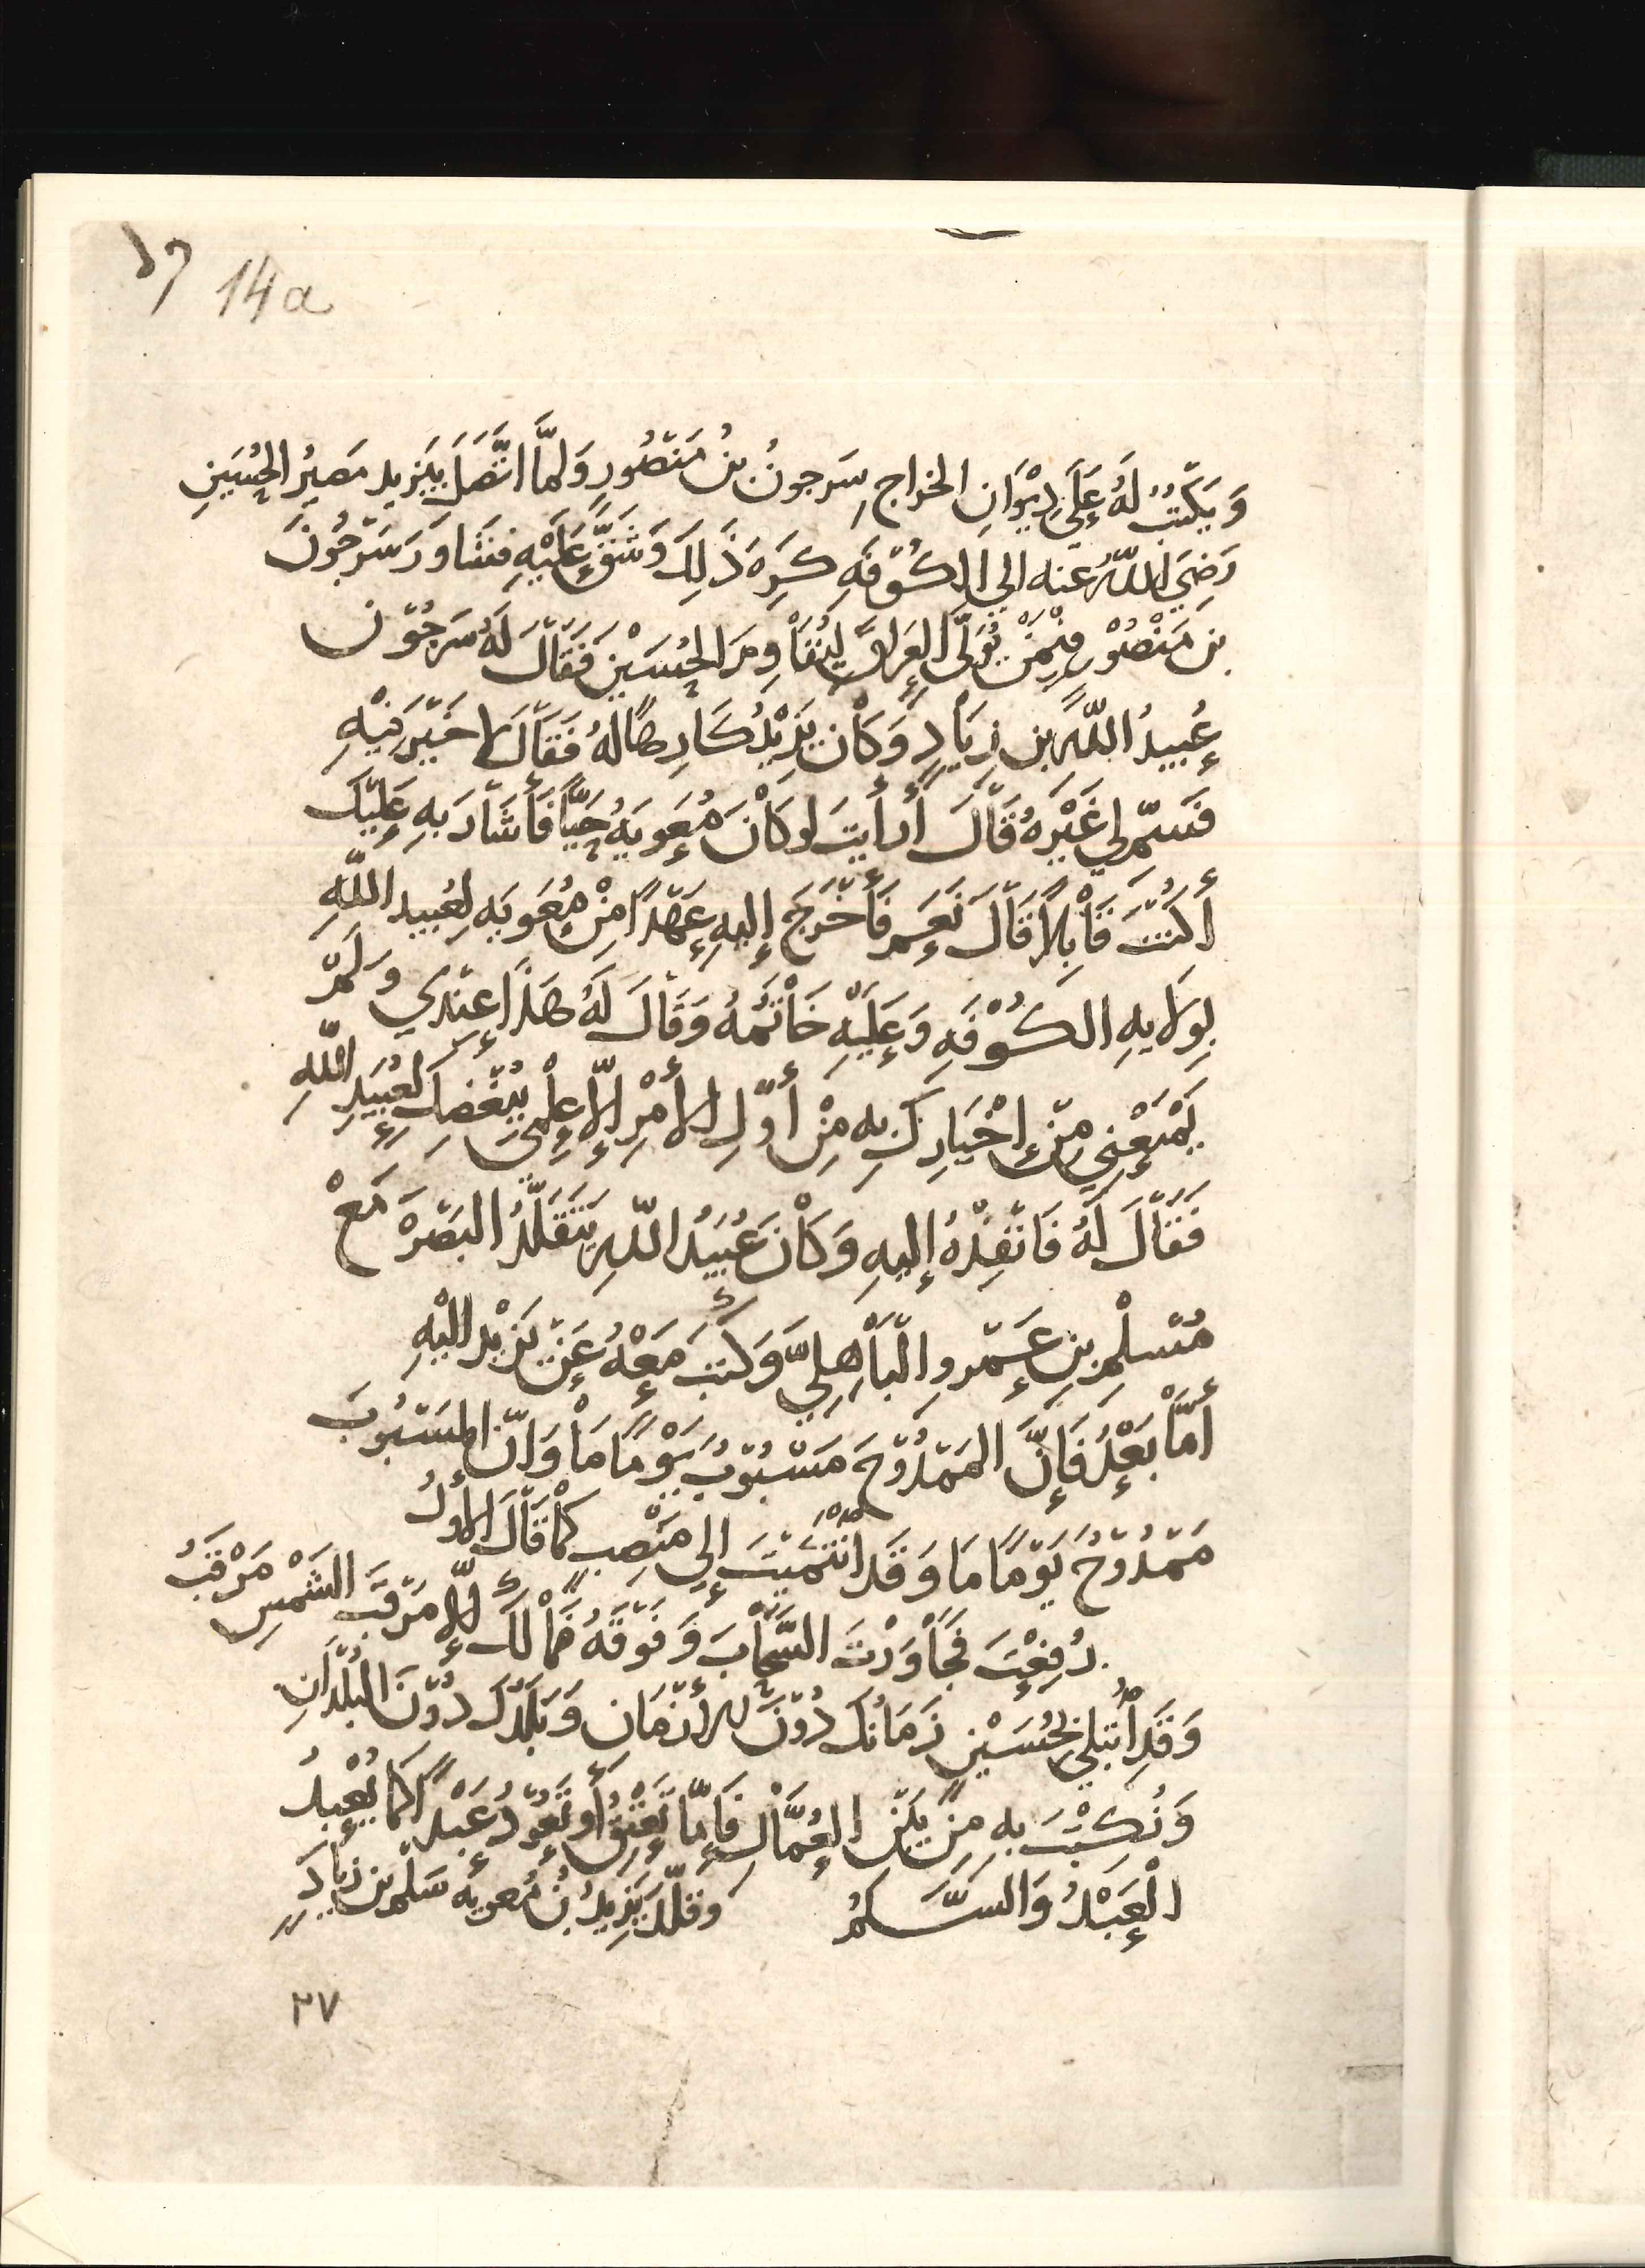 14a
وَيَكْتُبُ لَهُ عَلَى دِيْوَانِ الخراج سَرجونُ بنُ مَنْصُورٍ وَلَمَّا اتَّصَلَ بِيَزِيد مَصِيْرُ الحُسَينِ
رَضِيَ اللهُ عنه الي الكُوْفَهِ كَرِهَ ذَلِكَ وَشَقَّ عَلَيْهِ فشَاوَرَ سَرْجُونَ
بن مَنْصُوْر فِيْمَنْ يُوَلَّى العِرَاقَ لِيُقَاوِمَ الحُسَيْنِ فَقَالَ لَهُ سَرجُوْن
عُبيدُ اللهِ بن زِيَادٍ وَكَان يَزِيْدُ كَارِهًا لَهُ فَقَالَ لا خَيْرَ فِيْهِ
فَسَمِّ لِي غَيْرهُ قَالَ أَرأَيتَ لو كَانَ مُعَوِيَهُ حَيًّا فَأَشَارَ بِهِ عَلَيْكَ
أَكُنْتَ قَابِلاً قَالَ نَعَم فَأَخْرَجَ إِليهِ عَهْدًا مِنْ مُعَوِيَه لِعُبيد اللهِ
بِوِلَايهِ الكُوْفَهِ وَعَلَيْهِ خَاتَمُهُ وَقَالَ لَهُ هَذَا عِنْدِي وَلَمْ
يَمْنَعْنِي مِنْ إِخْبَارِكَ بِهِ مِنْ أَوَّلِ الأَمْرِ إِلَّا عِلْمِي بِبُغْضِكَ لعُبَيْدِ اللهِ
فَقَالَ لَهُ فَانْفِذْهُ إِليهِ وَكَانَ عُبَيْدُ اللهِ يَتَقَلَّدُ البَصْرَهَ مَعْ
مُسْلِم بنِ عَمْرو الْبَاهِلِيّ وَكَتبَ مَعْهُ عَنْ يَزِيْد إليْهِ
أَمَّا بَعْدُ فَإِنَّ المَمْدُوْحَ مَسْبُوْبٌ يَوْمًا مَا وَانَّ المَسْبُوبَ
مَمْدُوْحٌ يَوْمًا مَا وَقَد انْتَمَيْتَ إِلى مَنْصِبٍ كَمَا قَالَ الأَوَّلُ
رُفِعْتَ فَجَاوَزْتَ السَّحَابَ وَفَوْقَهُ فَمَا لَكَ إِلَّا مَرْقَبَ الشَّمْسِ مَرْقَبُ
وَقَدِ اُبْتُلِيَ بحُسَيْنٍ زَمَانُكَ دُوْنَ الأَزْمَان وَبَلَدُكَ دُوْنَ البُلْدَانِ
وَنُكِبْتَ بِهِ مِنْ بَيْنِ العُمَّالِ فَإِمَّا تُعْتَقُ أَو تَعُوْدُ عَبْدًا كَمَا يُعْبَدُ
الْعَبْدُ وَالسَّلمُ وقَلَّدَ يَزِيدُ بْنُ مُعويه سَلْم بن زيادٍ
٢٧